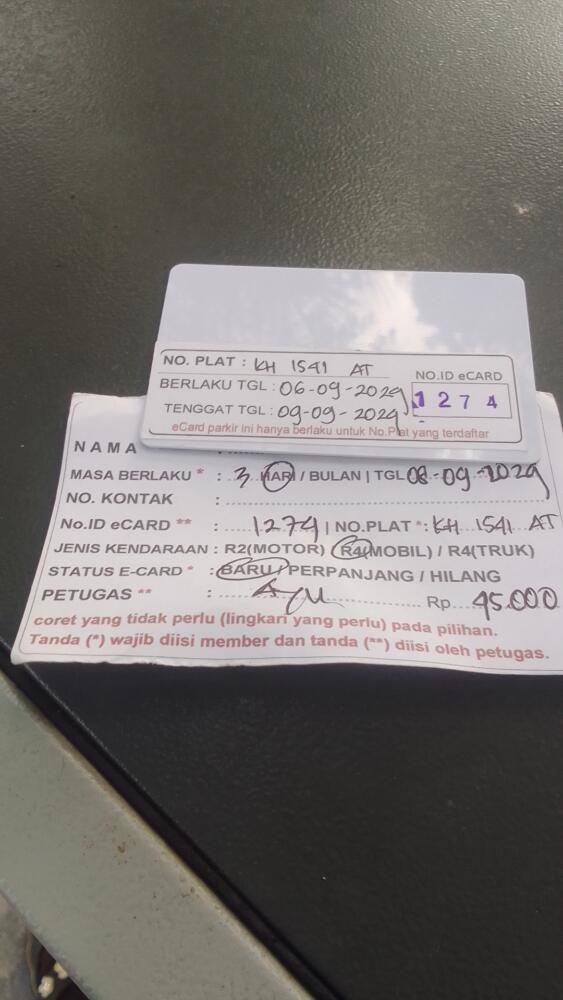 NO. PLAT : KH 1541 AT
BERLAKU TGL : 06-09-2024
TENGGAT TGL : 09-09-2024
NO.ID eCARD
1 2 7 4
eCard parkir ini hanya berlaku untuk No.Plat yang terdaftar
NAMA
MASA BERLAKU * : 3 HARI / BULAN | TGL 08-09-2024
NO. KONTAK :
No.ID eCARD ** : 1274 | NO.PLAT *: KH 1541 AT
JENIS KENDARAAN : R2(MOTOR) / R4(MOBIL) / R4(TRUK)
STATUS E-CARD * : BARU / PERPANJANG / HILANG
PETUGAS ** : Ayu Rp. 45.000
coret yang tidak perlu (lingkari yang perlu) pada pilihan.
Tanda (*) wajib diisi member dan tanda (**) diisi oleh petugas.